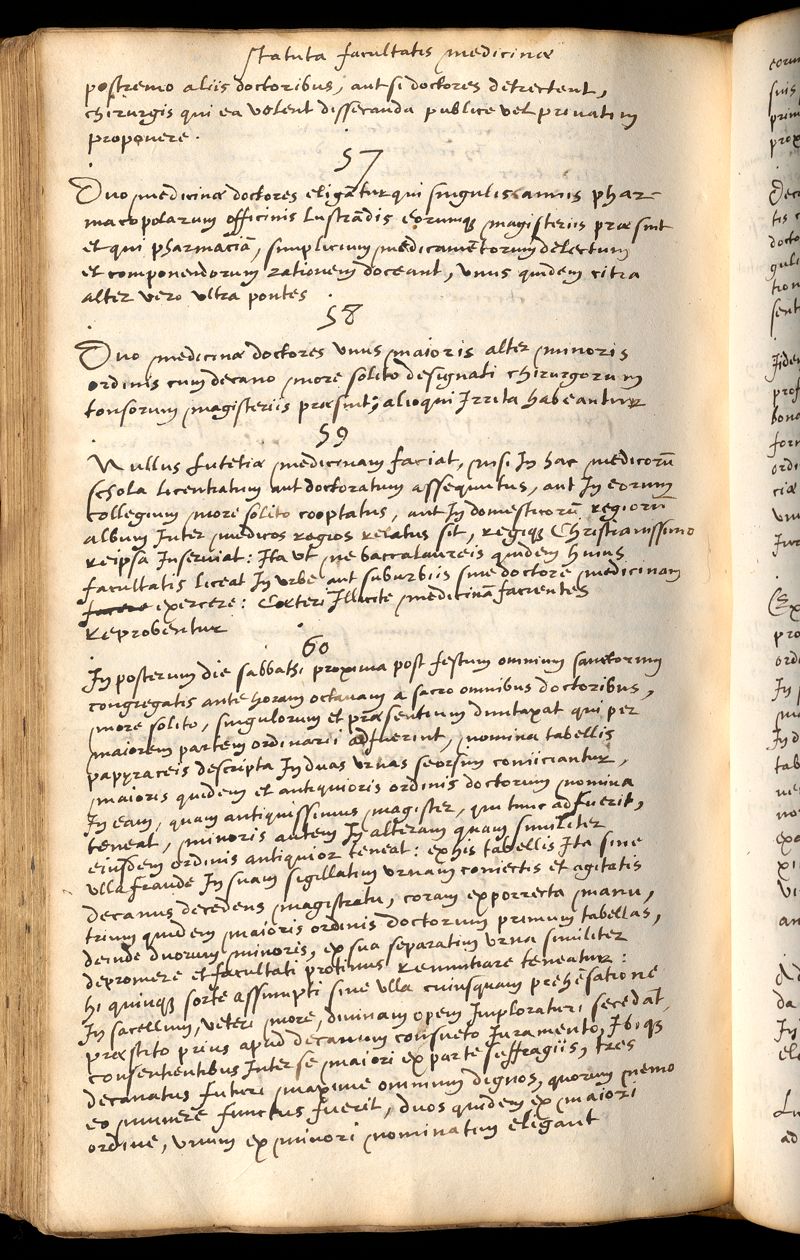 statuta facultatis medicinæ
postremo aliis doctoribus, aut si doctores detrectent,
chirurgis qui ea volent dissecanda publice vel privatim
proponere.
57
Duo medicinæ doctores eligātur qui singulis annis phar-
macopolarum officinis lustrādis eorumq; magisteriis præsint
et qui pharmaciā, simplicium medicamētorum delectum
et componendorum rationem doceant, vnus quidem citra
alter vero vltra pontes
58
Duo medicinæ doctores vnus maioris alter minoris
ordinis cum decano more solito designati chirurgorum
tonsorum magisteriis præsint; alioqui Irrita habeantur
59
Nullus Lutetiæ medicinam faciat, nisi In hac medicorū
schola licentiatum aut doctoratum assequutus, aut In eorum
collegium more solito cooptatus, aut In domesticorū regiorū
album Inter medicos regios relatus sit, regiq; Christianissimo
reipsa Inserviat: Ita vt ne baccalaureis quidem huius
facultatis liceat In vrbe aut suburbiis sine doctore medicinam
facere exercere: Cæteri Illicite medicinā facientes
reprobentur
60
In posterum die sabbathi proxima post festum omnium sanctorum
congregatis ante horam octavam a sacro omnibus doctoribus,
more solito, singulorum et præsentium duntaxat qui per
maiorem partem ordinarii adfuerint, nomina tabellis
papyraceis descripta In duas vrnas seorsim coniiciantur,
maioris quidem et antiquioris ordinis doctorum nomina
In eam, quam antiquissimus magister, qui tunc adfuerit,
teneat, minoris autem In alteram quam similiter
eiusdem ordinis antiquior teneat: ex his tabellis Ita sine
vlla fraude In suam sigillatim vrnam coniectis et agitatis
decanus decedens magistratu, coram exporrecta manu,
trium quidem maioris ordinis doctorum primum tabellas,
deinde duorum minoris, ex sua separatim vrna similiter
depromere et facultati protinus renuntiare teneatur:
hi quinq; sorte assumpti sine vlla cuiusquam prehēsatione
In sacellum, veteri more, divinam opem Imploraturi secedāt,
præstito prius apud decanum consueto Iuramento, Ibiq;
consentientibus Inter se maiori ex parte suffragiis, tres
decanatus futuri maxime omnium dignos, quorum nemo
eo munere functus fuerit, duos quidem ex maiori
ordine, vnum ex minori nominatim eligant